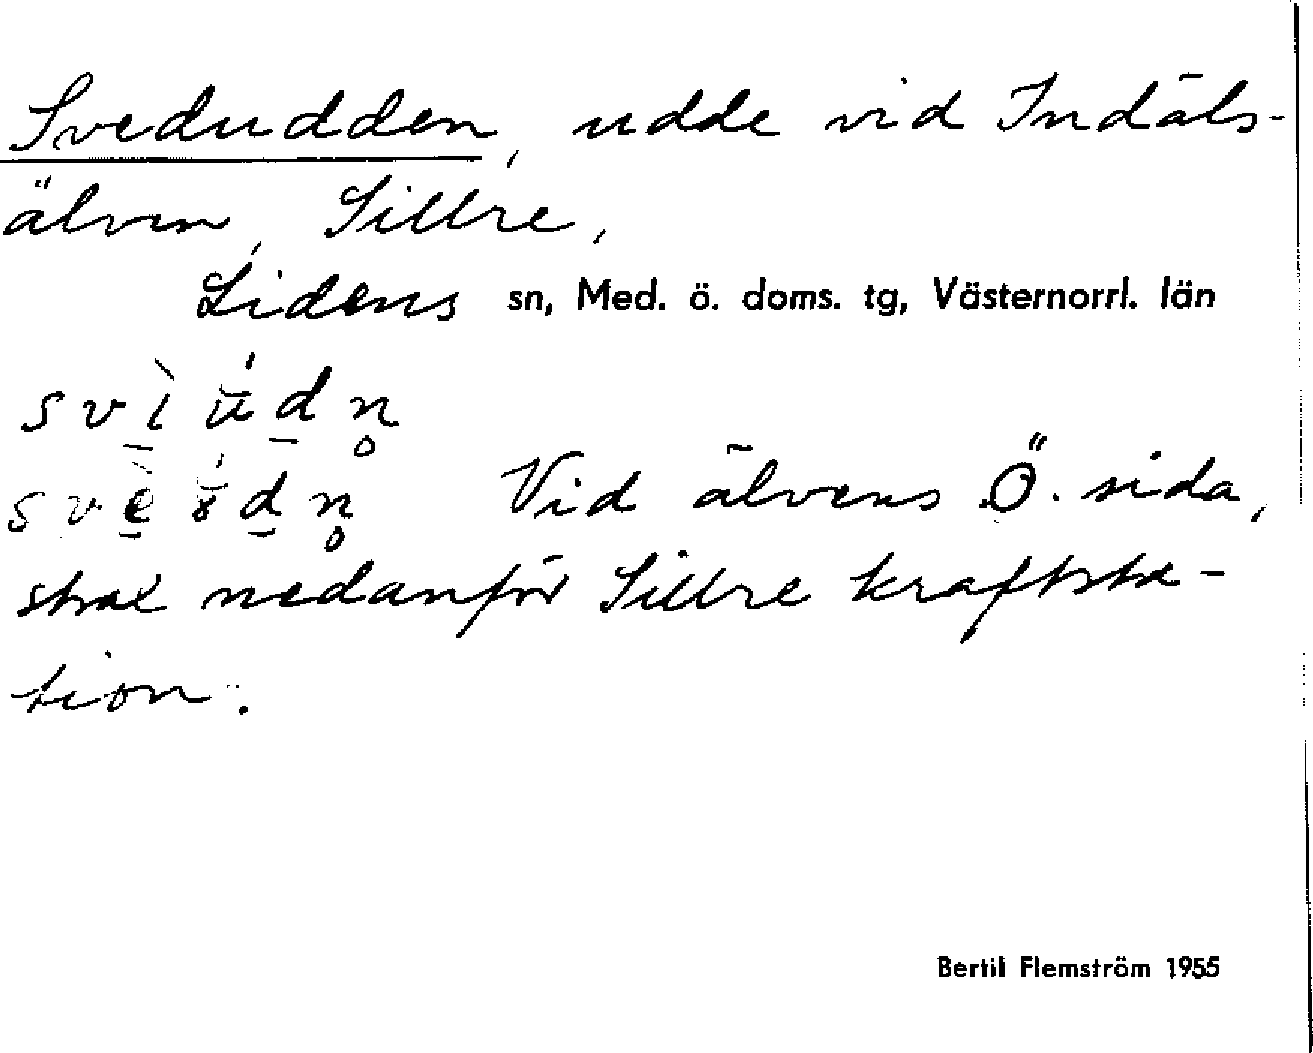 Svedudden, udde vid Indals-
älven, Sillre,
Lidens sn, Med. ö. doms. tg, Västernorrl. län
Vid älvens Ö. sida,
strax nedanför Sillre kraftsta-
tion.
Bertil Flemström 1955